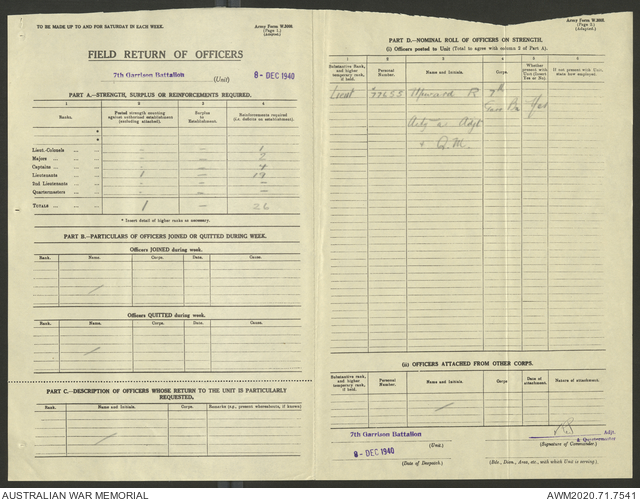 TO BE MADE UP TO AND FOR SATURDAY IN EACH WEEK.
Army Form W.3008.
(Page 1.)
(Adapted.)
FIELD RETURN OF OFFICERS
7th Garrison Battalion (Unit) 8 - DEC 1940
PART A.—STRENGTH, SURPLUS OR REINFORCEMENTS REQUIRED.
1 2 3 4
Ranks. Posted strength counting against authorized establishment (excluding attached). Surplus to Establishment. Reinforcements required (i.e. deficits on establishment).
*
*
Lieut.-Colonels ... ... - - 1
Majors ... ... - - 2
Captains ... ... - - 4
Lieutenants ... ... 1 - 19
2nd Lieutenants ... ... - - -
Quartermasters ... ... - - -
TOTALS ... ... 1 - 26
* Insert detail of higher ranks as necessary.
PART B.—PARTICULARS OF OFFICERS JOINED OR QUITTED DURING WEEK.
Officers JOINED during week.
Rank. Name. Corps. Date. Cause.
Officers QUITTED during week.
Rank. Name. Corps. Date. Cause.
PART C.—DESCRIPTION OF OFFICERS WHOSE RETURN TO THE UNIT IS PARTICULARLY REQUESTED.
Rank. Name and Initials. Corps. Remarks (e.g., present whereabouts, if known)
Army Form W.3008.
(Page 2.)
(Adapted.)
PART D.—NOMINAL ROLL OF OFFICERS ON STRENGTH.
(i) Officers posted to Unit (Total to agree with column 2 of Part A).
1 2 3 4 5 6
Substantive Rank, and higher temporary rank, if held. Personal Number. Name and Initials. Corps. Whether present with Unit (Insert Yes or No). If not present with Unit, state how employed.
Lieut 77655 Upward R 7th Yes
Garr Bn
Actg as Adjt
& Q.M.
(ii) OFFICERS ATTACHED FROM OTHER CORPS.
Substantive rank, and higher temporary rank, if held. Personal Number. Name and Initials. Corps. Date of attachment. Nature of attachment.
7th Garrison Battalion
(Unit.)
Adjt.
& Quartermaster
(Signature of Commander.)
8 - DEC 1940
(Date of Despatch.)
(Bde., Divn., Area, etc., with which Unit is serving.)
AUSTRALIAN WAR MEMORIAL
AWM2020.71.7541